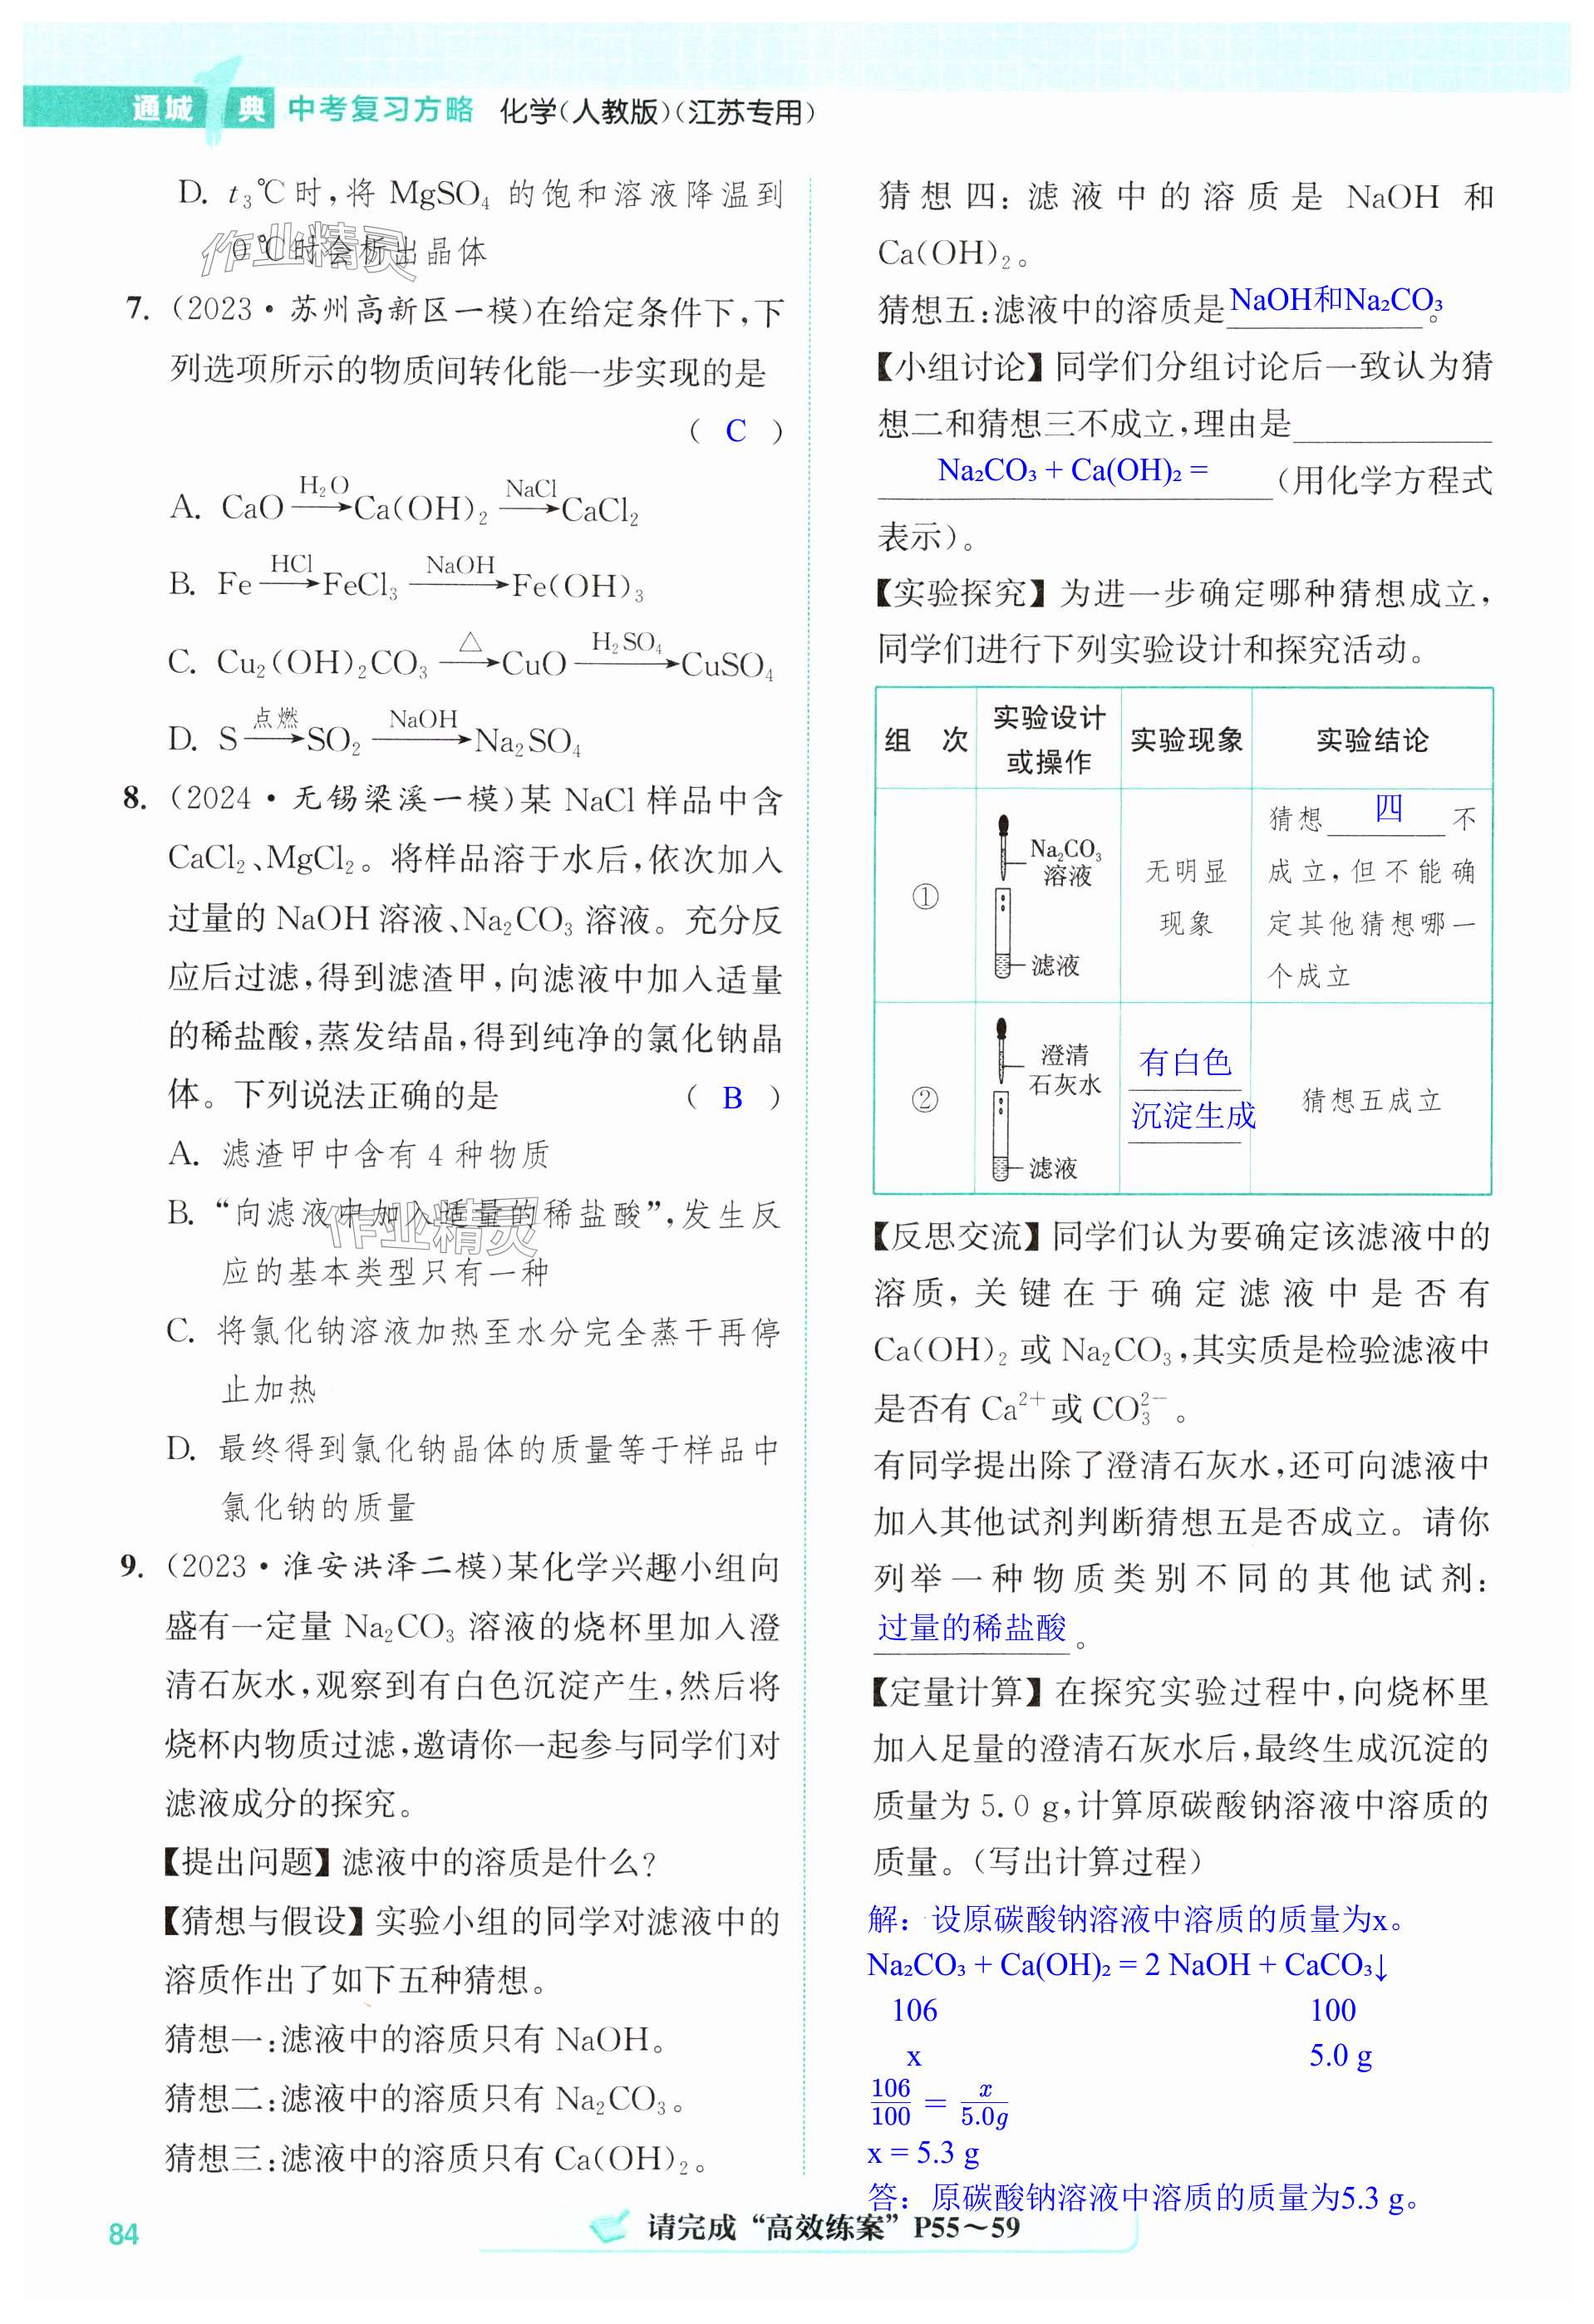 通城1典 中考复习方略 化学(人教版)(江苏专用)
D. t₃℃时,将 MgSO₄ 的饱和溶液降温到
0℃时会析出晶体
作业精灵
7. (2023·苏州高新区一模)在给定条件下,下
列选项所示的物质间转化能一步实现的是
( C )
A. CaO —H₂O→ Ca(OH)₂ —NaCl→ CaCl₂
B. Fe —HCl→ FeCl₃ —NaOH→ Fe(OH)₃
C. Cu₂(OH)₂CO₃ —△→ CuO —H₂SO₄→ CuSO₄
D. S —点燃→ SO₂ —NaOH→ Na₂SO₄
8. (2024·无锡梁溪一模)某 NaCl 样品中含
CaCl₂、MgCl₂。将样品溶于水后,依次加入
过量的 NaOH 溶液、Na₂CO₃ 溶液。充分反
应后过滤,得到滤渣甲,向滤液中加入适量
的稀盐酸,蒸发结晶,得到纯净的氯化钠晶
体。下列说法正确的是 ( B )
A. 滤渣甲中含有 4 种物质
B. “向滤液中加入适量的稀盐酸”,发生反
作业精灵
应的基本类型只有一种
C. 将氯化钠溶液加热至水分完全蒸干再停
止加热
D. 最终得到氯化钠晶体的质量等于样品中
氯化钠的质量
9. (2023·淮安洪泽二模)某化学兴趣小组向
盛有一定量 Na₂CO₃ 溶液的烧杯里加入澄
清石灰水,观察到有白色沉淀产生,然后将
烧杯内物质过滤,邀请你一起参与同学们对
滤液成分的探究。
【提出问题】滤液中的溶质是什么?
【猜想与假设】实验小组的同学对滤液中的
溶质作出了如下五种猜想。
猜想一:滤液中的溶质只有 NaOH。
猜想二:滤液中的溶质只有 Na₂CO₃。
猜想三:滤液中的溶质只有 Ca(OH)₂。
猜想四:滤液中的溶质是 NaOH 和
Ca(OH)₂。
猜想五:滤液中的溶质是 NaOH和Na₂CO₃ 。
【小组讨论】同学们分组讨论后一致认为猜
想二和猜想三不成立,理由是
Na₂CO₃ + Ca(OH)₂ = (用化学方程式
表示)。
【实验探究】为进一步确定哪种猜想成立,
同学们进行下列实验设计和探究活动。
组 次 实验设计或操作 实验现象 实验结论
① Na₂CO₃溶液 滤液 无明显现象 猜想 四 不成立,但不能确定其他猜想哪一个成立
② 澄清石灰水 滤液 有白色沉淀生成 猜想五成立
【反思交流】同学们认为要确定该滤液中的
溶质,关键在于确定滤液中是否有
Ca(OH)₂ 或 Na₂CO₃,其实质是检验滤液中
是否有 Ca²⁺ 或 CO₃²⁻。
有同学提出除了澄清石灰水,还可向滤液中
加入其他试剂判断猜想五是否成立。请你
列举一种物质类别不同的其他试剂:
过量的稀盐酸 。
【定量计算】在探究实验过程中,向烧杯里
加入足量的澄清石灰水后,最终生成沉淀的
质量为 5.0 g,计算原碳酸钠溶液中溶质的
质量。(写出计算过程)
解:设原碳酸钠溶液中溶质的质量为x。
Na₂CO₃ + Ca(OH)₂ = 2 NaOH + CaCO₃↓
106 100
x 5.0 g
106/100 = x/5.0g
x = 5.3 g
答:原碳酸钠溶液中溶质的质量为5.3 g。
84
请完成“高效练案”P55～59